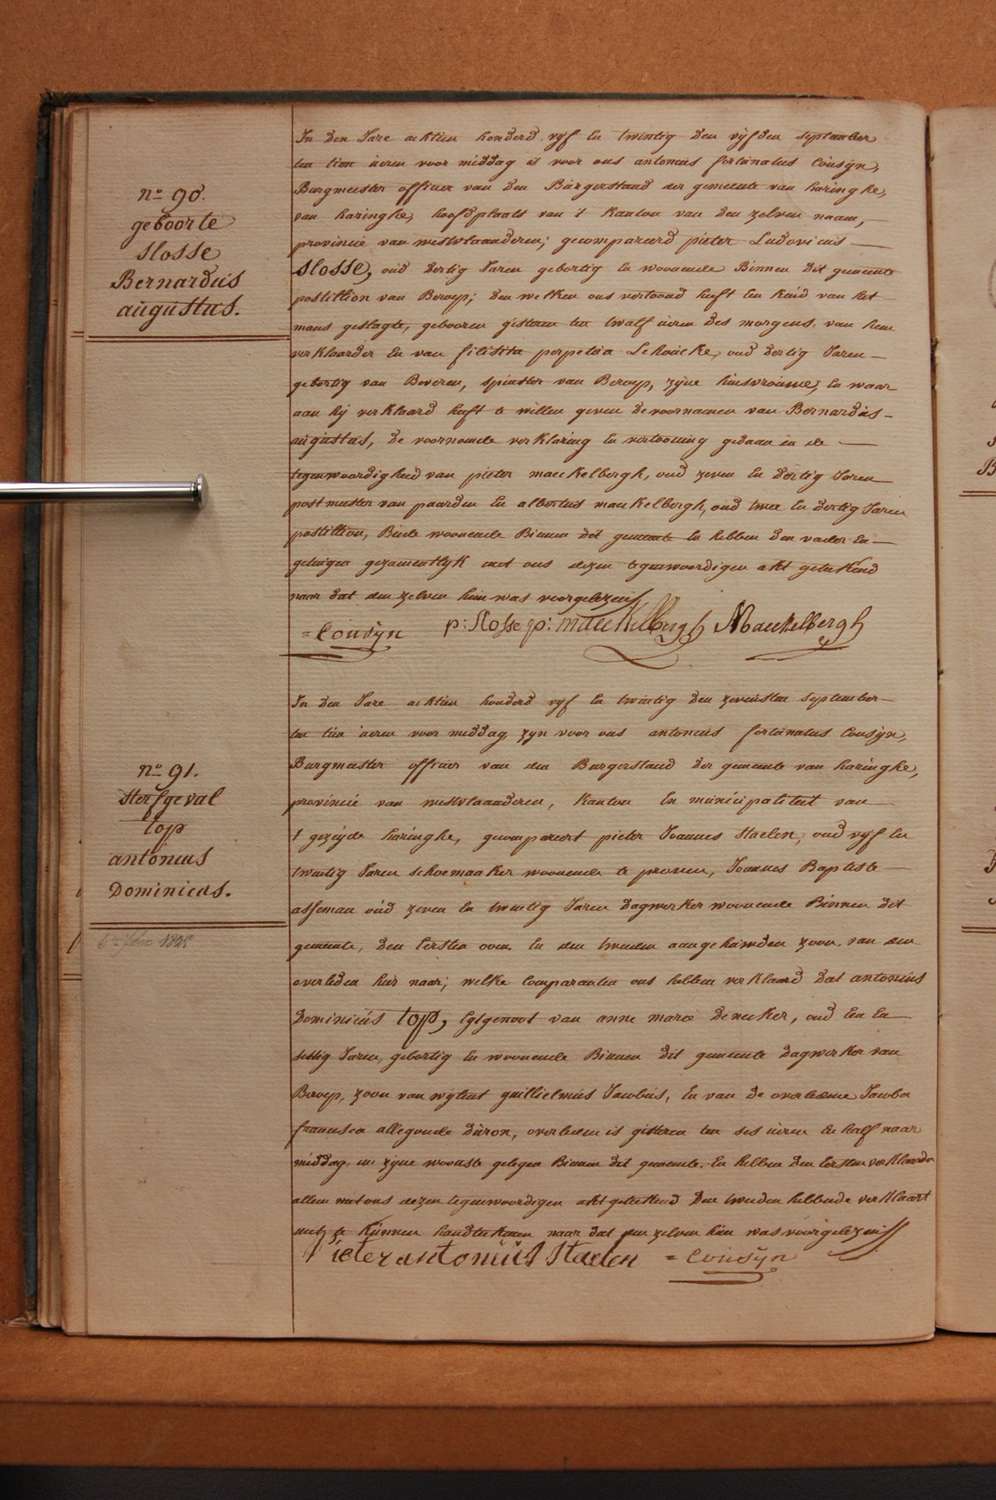 n.º 90.
geboorte
Slosse
Bernardus
augustus.
In den Jare achtien honderd vyf En twintig den vyfden september
ten tien ueren voor middag is voor ons antonius fortunatus Cousyn,
Burgmeester officier van den Burgerstand der gemeente van haringhe,
van haringhe, hoofdplaets van 't Kanton van den zelven naam,
provincie van westvlaanderen; gecompareerd pieter Ludovicus
Slosse, oud dertig Jaren gebortig En woonende Binnen dit gemeente
postillion van Beroep; den welken ons vertoond heeft Een kind van het
mans geslagte, gebooren gisteren ten twalf ueren des morgens, van hem
verklaarder En van felisita perpetua Lehoucke, oud dertig Jaren
gebortig van Beveren, spinster van Beroep, zyne huisvrouwe, En waar
aan hy verklaard heeft te willen geven de voornamen van Bernardus
augustus, de voornoemde verklaring En vertooning gedaan in de
tegenwoordigheid van pieter maeckelbergh, oud zeven En dertig Jaren
postmeester van paarden En albertus maeckelbergh, oud twee En dertig Jaren
postillion, Beide woonende Binnen dit gemeente En hebben den vader En
getuigen gezamentlyk met ons dezen tegenwoordigen akt geteekend
naar dat den zelven hun was voorgelezen
= Cousyn p: Slosse p: maeckelbergh Maeckelbergh
n.º 91.
Sterfgeval
top
antonius
Dominicus.
In den Jare achtien honderd vyf En twintig den zevensten september
ten tien ueren voor middag, zyn voor ons antonius fortunatus Cousyn,
Burgmeester officier van den Burgerstand der gemeente van haringhe,
provincie van westvlaanderen, Kanton En municipaliteit van
't gezeyde haringhe, gecompareert pieter Joannes Staelen, oud vyf En
twintig Jaren schoemaaker woonende te proven, Joannes Baptiste
asseman oud zeven En twintig Jaren dagwerker woonende Binnen dit
gemeente, den Eersten oom En den tweeden aangehuwden zoon van den
overleden hier naar; welke Comparanten ons hebben verklaard dat antonius
Dominicus top, Egtgenoot van anne marie denecker, oud Een En
sestig Jaren, gebortig En woonende Binnen dit gemeente dagwerker van
Beroep, zoon van wylent guillielmus Jacobus, En van de overledene Jacoba
francisca allegonde duron, overleden is gisteren ten ses ueren En half naar
middag, in zyne woonste gelegen Binnen dit gemeente. En hebben den Eersten verklaarder
alleen met ons dezen tegenwoordigen akt geteekend den tweeden hebbende verklaart
niet te kunnen handteekenen naar dat den zelven hun was voorgelezen
Pieter antonius Staelen = Cousyn